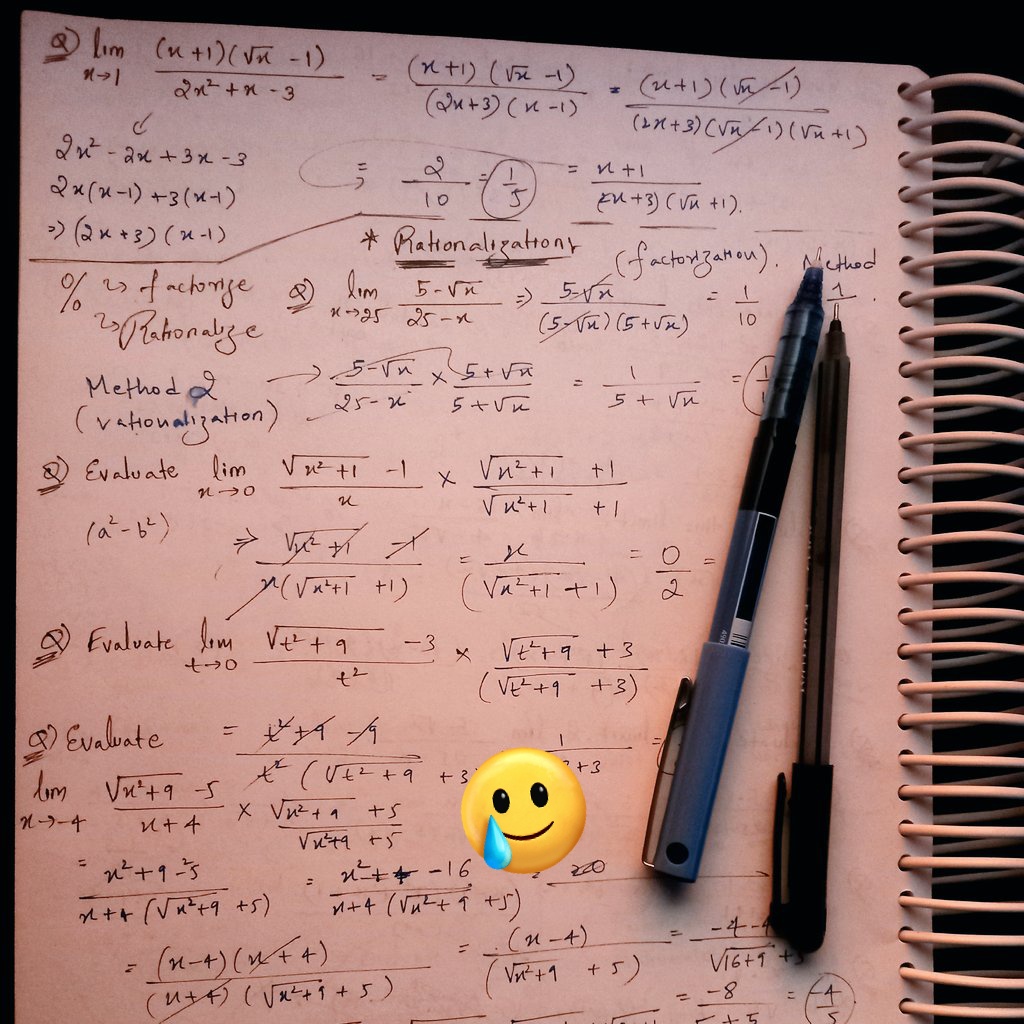 Q) lim x→1 (x+1)(√x -1) / 2x²+x-3 = (x+1)(√x -1) / (2x+3)(x-1) = (x+1)(√x -1) / (2x+3)(√x-1)(√x+1)
2x² - 2x + 3x - 3
= 2/10 = 1/5 = x+1 / (2x+3)(√x+1).
2x(x-1) +3(x-1)
⇒ (2x+3)(x-1)
* Rationalization
(factorization). Method
% ↳ factorize
↳ Rationalize
Q) lim x→25 5-√x / 25-x ⇒ 5-√x / (5-√x)(5+√x) = 1/10 1.
Method 2
(rationalization)
→ 5-√x / 25-x × 5+√x / 5+√x = 1 / 5+√x =
Q) Evaluate lim x→0 √x²+1 -1 / x × √x²+1 +1 / √x²+1 +1
(a²-b²)
⇒ √x²+1 -1 / x(√x²+1 +1) = x / (√x²+1 +1) = 0/2 =
Q) Evaluate lim t→0 √t²+9 -3 / t² × √t²+9 +3 / (√t²+9 +3)
= t²+9-9 / t²(√t²+9 +3 1 / 3+3 =
Q) Evaluate
lim x→-4 √x²+9 -5 / x+4 × √x²+9 +5 / √x²+9 +5
= x²+9-5² / x+4(√x²+9 +5) = x² -16 / x+4(√x²+9 +5)
= (x-4)(x+4) / (x+4)(√x²+9 +5) = (x-4) / (√x²+9 +5) = -4-4 / √16+9 +5
= -8 / 5+5 = -4/5